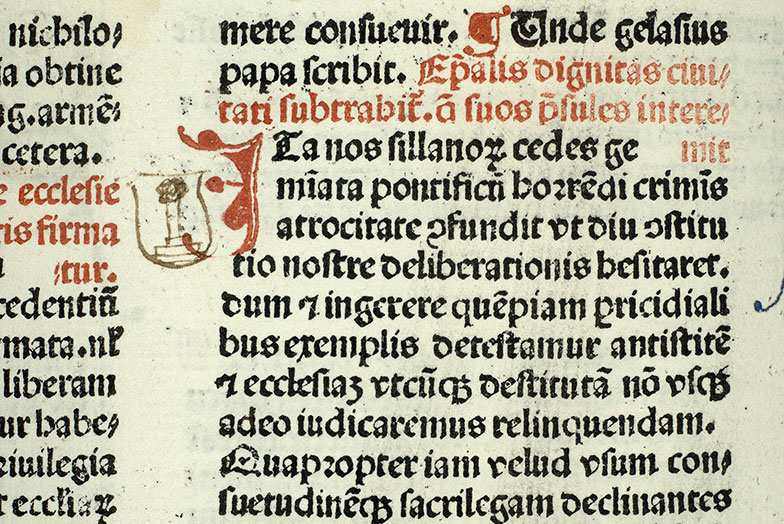 nichilo⸗
ia obtine
g.armē⸗
cetera.
e ecclesie
ris firma
⸗tur.
cedentiū
mata.nł
liberam
ur habe⸗
riuilegia
t eccłiaꝝ
mere consueuir. ¶ Unde gelasius
papa scribit. Ep̄alis dignitas ciui⸗
tati subtrahit̄.q̄ suos p̄sules intere⸗
mit
ITa nos sillanoꝝ cedes ge
mīata pontificū horrēdi crimīs
atrocitate ꝯfundit vt diu ꝯstitu
tio nostre deliberationis hesitaret.
dum ⁊ ingerere quēpiam ꝑricidiali
bus exemplis detestamur antistitē
⁊ ecclesiaꝫ vtcūqꝫ destitutā nō vsqꝫ
adeo iudicaremus relinquendam.
Quapropter iam velud vsum con⸗
suetudinēqꝫ sacrilegam declinantes